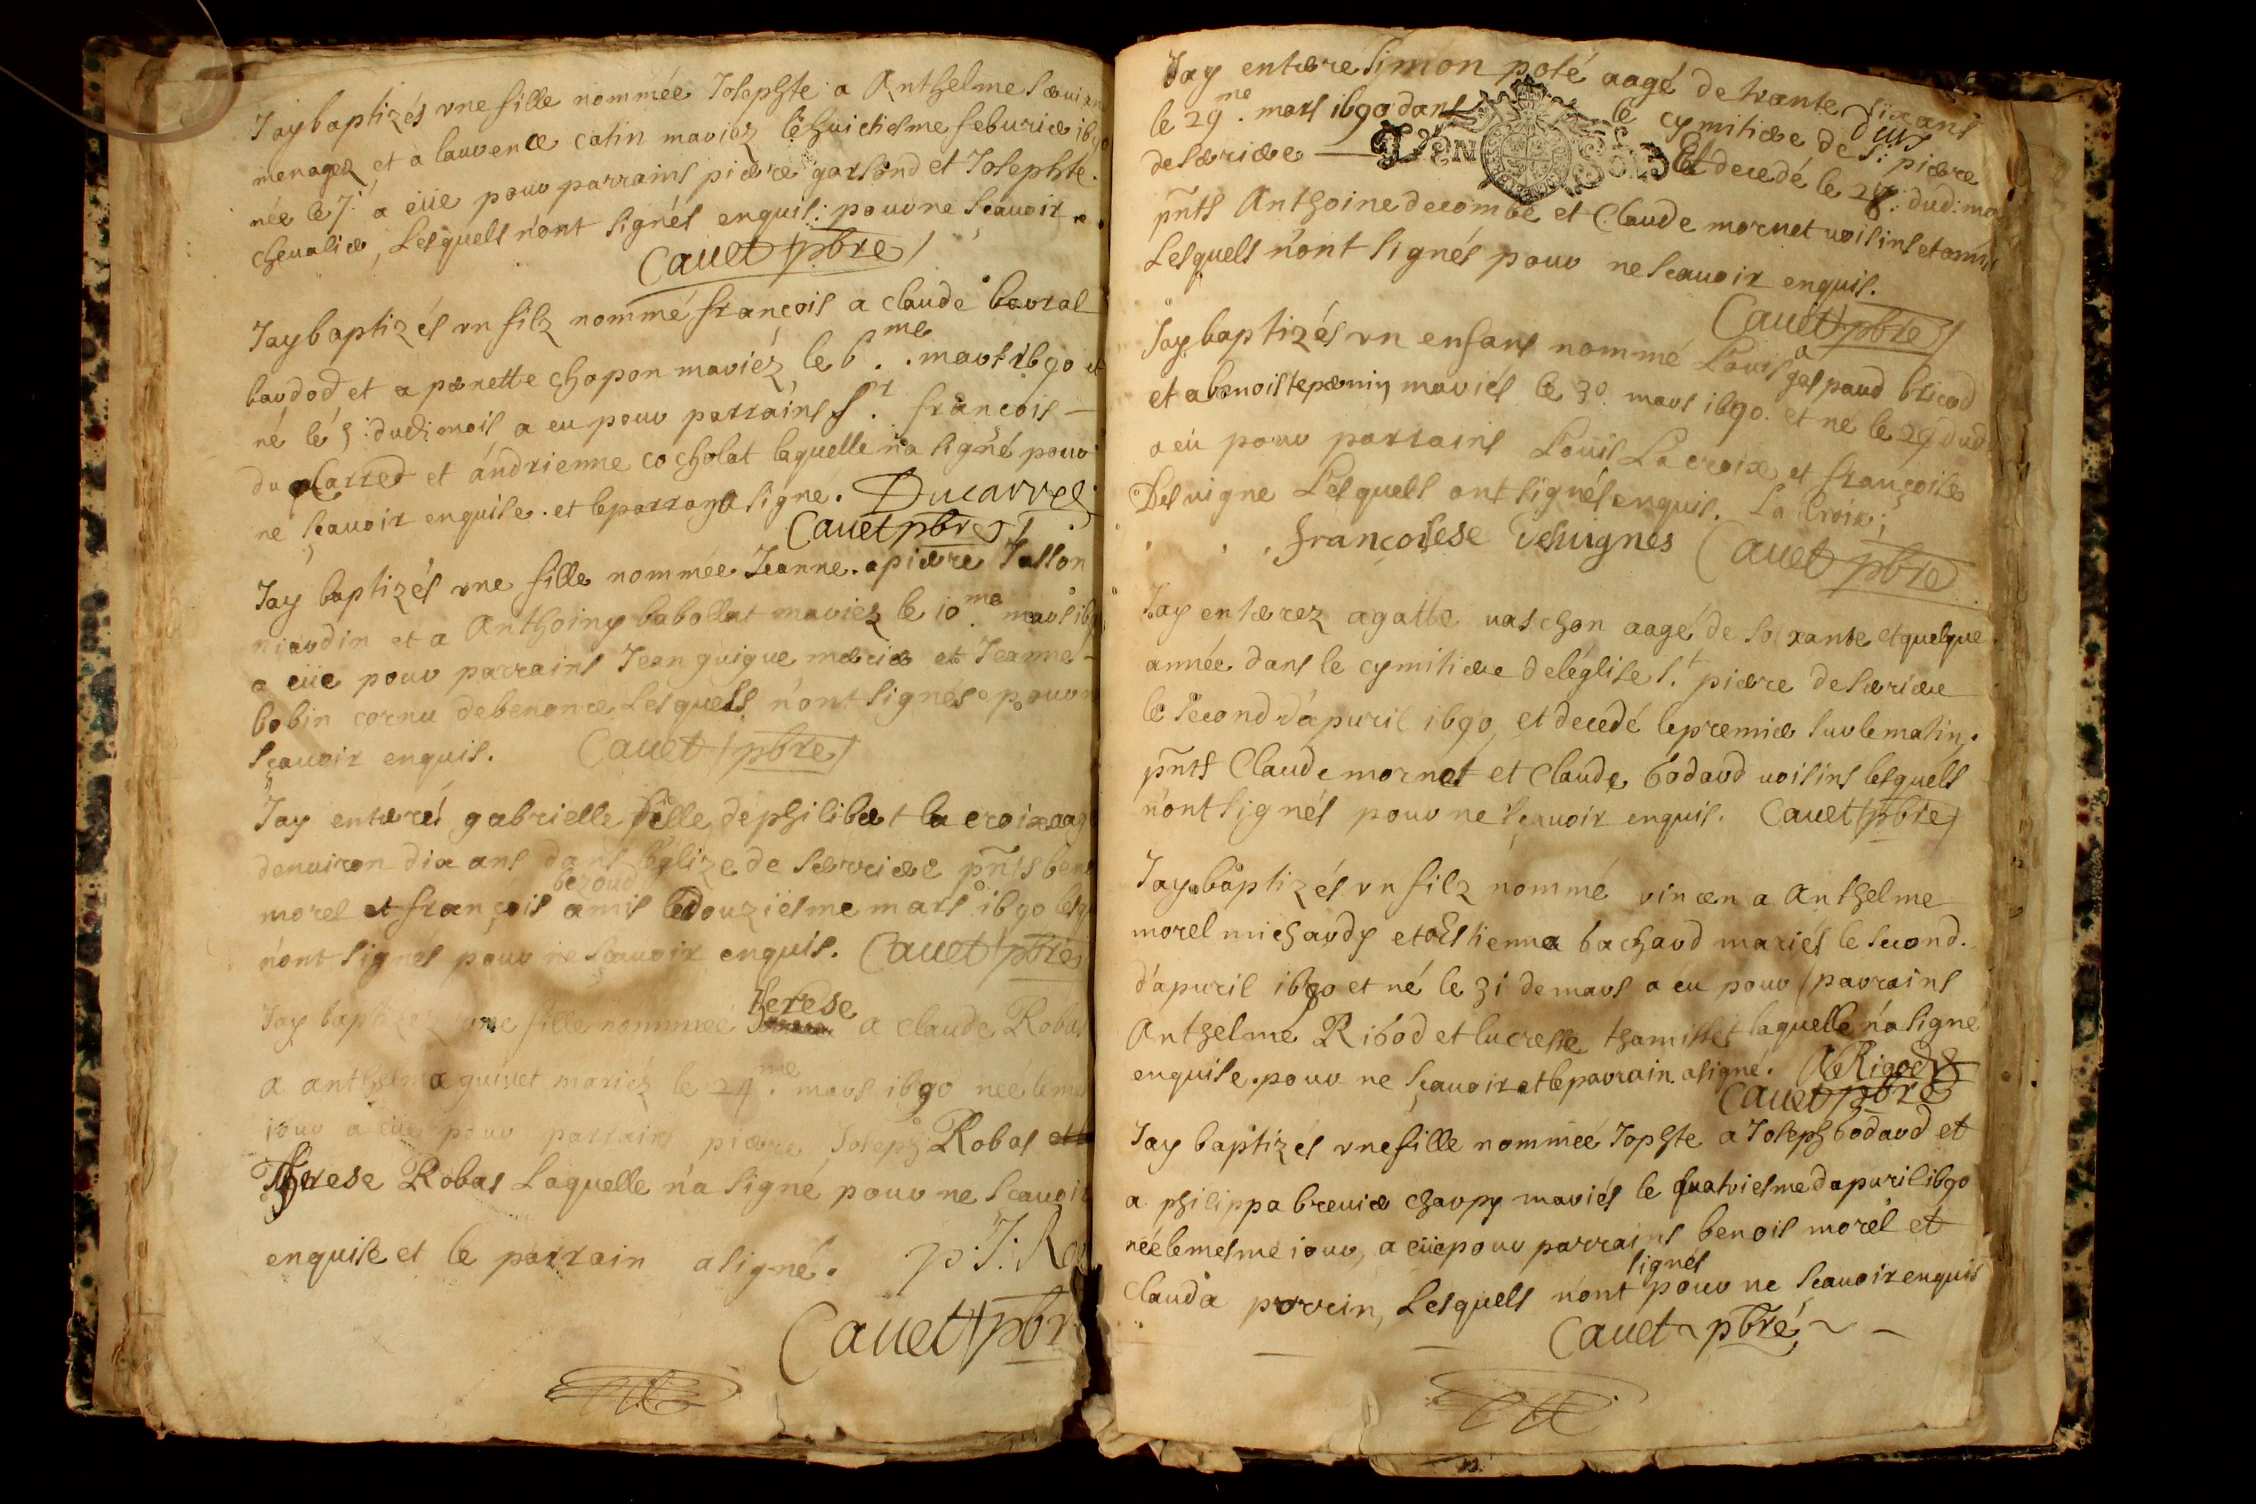 Jay baptizés vne fille nommée Iosephte a Anthelme
menager et a laurence catin mariez le huictiesme feburier 1690
née le 7. a eüe pour parrains pierre garsond et Iosephte
cheualier, Lesquels n'ont signés enquis: pour ne scauoir
Cauet pbre
Jay baptizés vn filz nommé françois a claude
baudod et a pernette chapon mariéz le 6.me mars 1690 et
né lé 5: dud: mois a eu pour parrains S.r françois
du Carred et andrienne cocholat laquelle na signé pour
ne scauoir enquise. et le parrain a signé. Ducarre
Cauet pbre
Jay baptizés vne fille nommée Jeanne. a pierre Tallon
niaudin et a Anthoiny babollat mariez le 10.me mars 1690
a eüe pour parrains Jean guigue mercier et Jeanne
bobin cornu debenonce Lesquels n'ont signés pour ne
scauoir enquis. Cauet pbre
Jay enterré gabrielle fille de philibert la croix aagé
denuiron dix ans dans l'eglize de serriere pñts
bezoud
morel et françois amis le douziesme mars 1690 lesq
n'ont signés pour ne scauoir enquis. Cauet pbre
therese
Jay baptizez vne fille nommeé a claude Robas
a anthelma guiuet mariéz le 24.me mars 1690 neé le me
iour a eüe pour parrains pierre Joseph Robas et a
Therese Robas Laquelle n'a signé pour ne scauoir
enquise et le parrain a signé. p: J: Ro
Cauet pbre
Jay enterré Simon poté aagé de trante six ans
le 29.me mars 1690 dans le cymitiere de S.t pierre
de seriere DEN SOLS Et decedé le 28: dud: mois
pñts Anthoine decombe et Claude mornet uoisins et amis
Lesquells n'ont signés pour ne scauoir enquis.
Cauet pbre
Jay baptizés vn enfans nommé Louis a gaspard bricod
et a benoiste pernin mariés le 30. mars 1690. et né le 29 dud
a eü pour parrains Louis Lacroix et françoise
Desuigne Lesquells ont signés enquis. La Croix;
françoiese desuignes Cauet pbre
Jay enterez agatte uaschon aagé de soixante et quelque
année dans le cymitiere de léglise S.t pierre de seriere
le second d'apuril 1690, et decedé le premier sur le matin.
pñts Claude mornet et Claude bodaud uoisins lesquells
n'ont signés pour ne scauoir enquis. Cauet pbre
Jay baptizés vn filz nommé vincen a Anthelme
morel michaudy et a Estienna bachaud mariés le second.
d'apuril 1690 et né le 31 de mars a eu pour parrains
Anthelme Ribod et lucresse thamillet laquelle n'a signé
enquise. pour ne scauoir et le parrain a signé.
Cauet pbre
Jay baptizés vne fille nommeé Iophte a Joseph bodaud et
a philippa breuier charpy mariés le quatriesme dapuril 1690
née le mesme iour, a eüe pour parrains benois morel et
signés
Clauda porrin, Lesquels n'ont pour ne scauoir enquis
Cauet pbré